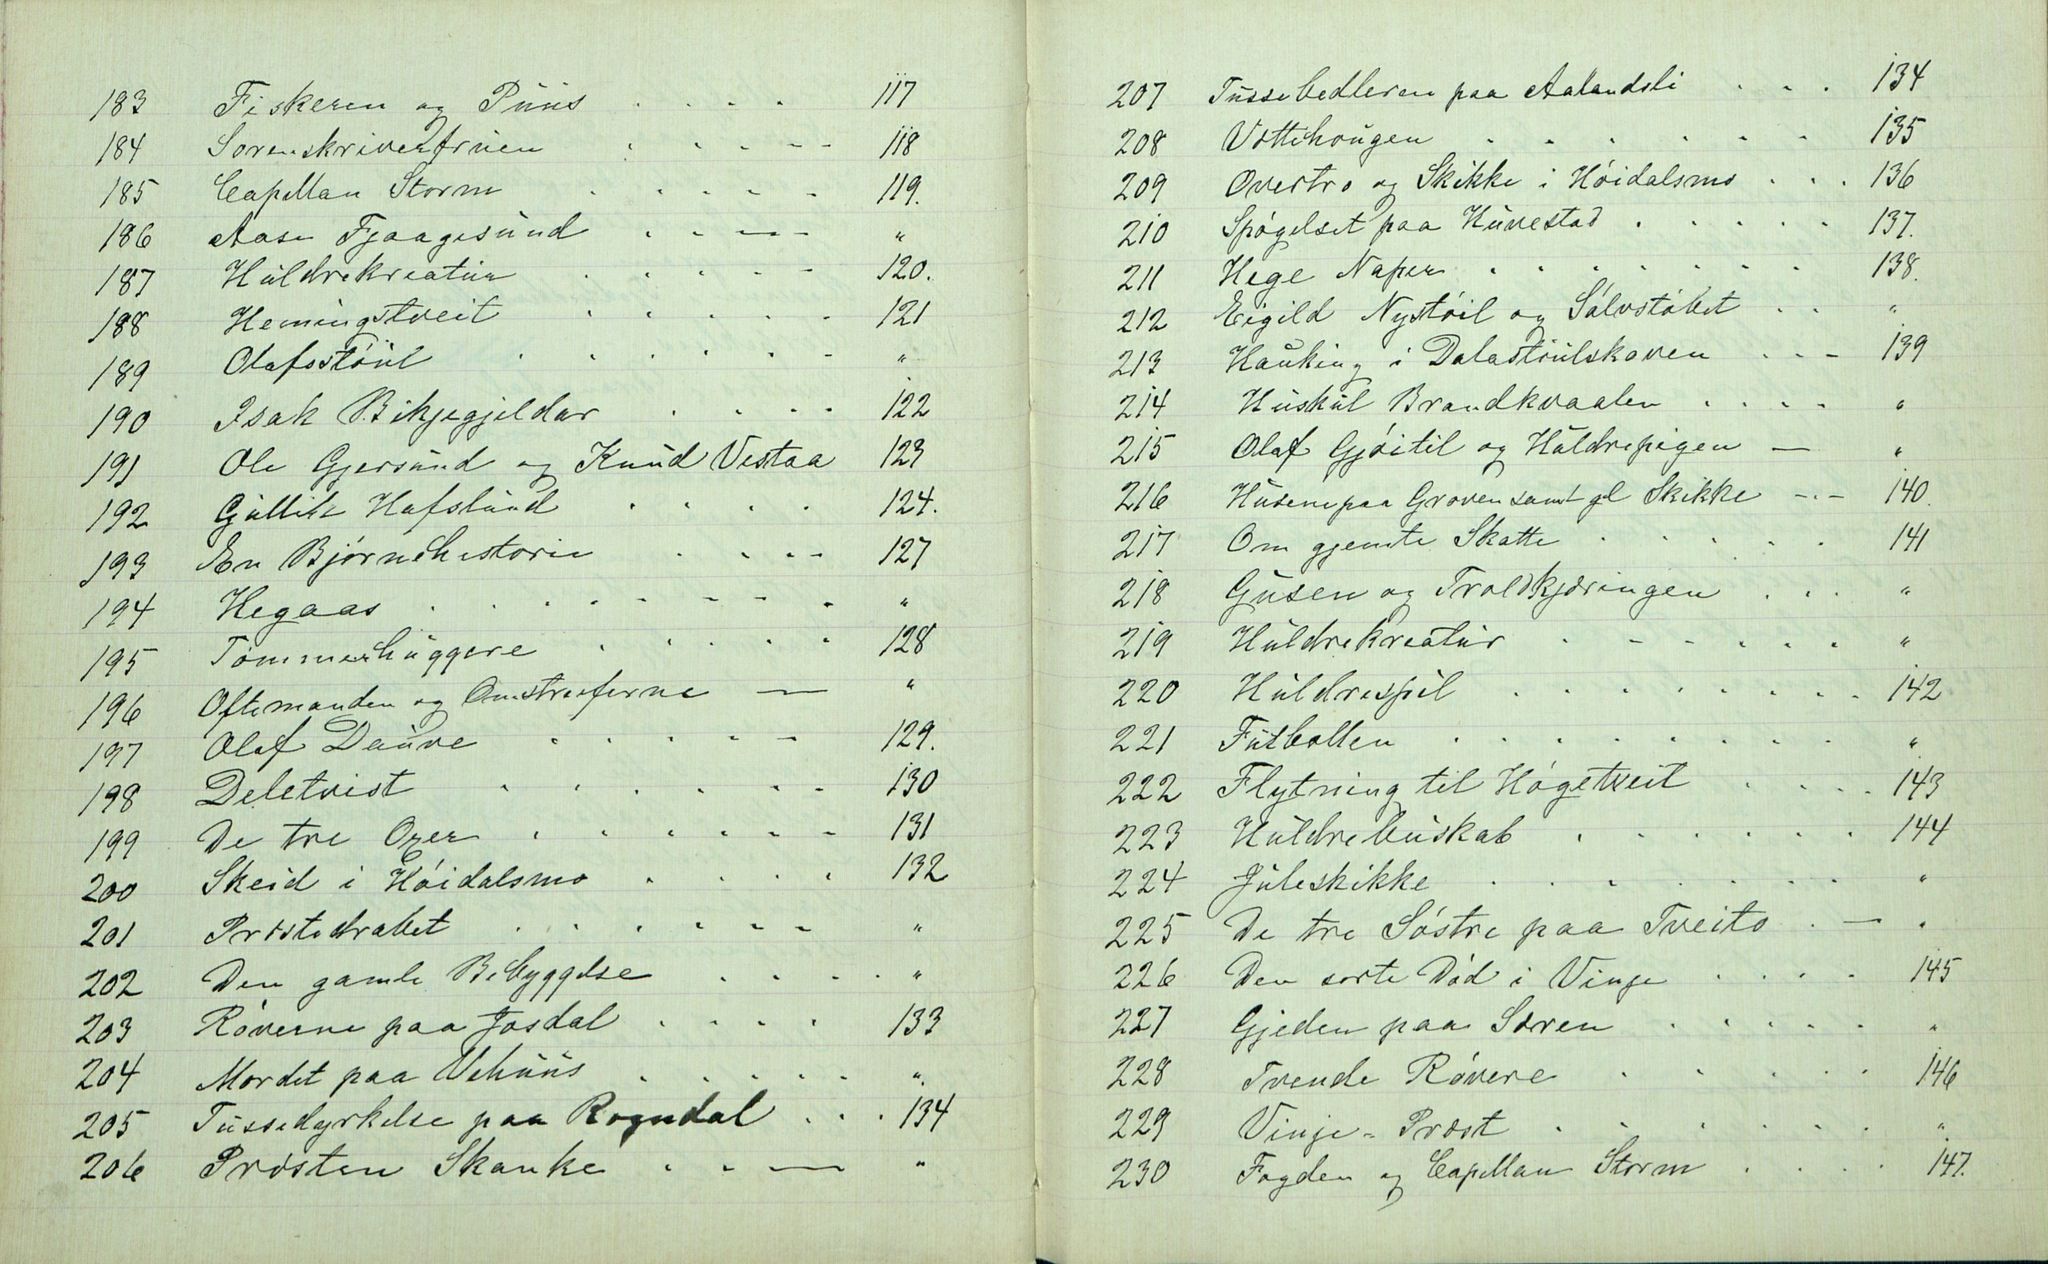 183 Fiskeren og Puus . . . . 117
184 Sorenskriverfruen . . . . . 118
185 Capellan Storm . . . . . 119.
186 Aase Fjaagesund . . . . . "
187 Huldrekreatur . . . . . 120.
188 Hemingstveit . . . . . 121
189 Olafsstöul . . . . . . "
190 Isak Bikjegjeldar . . . . 122
191 Ole Gjersund og Knud Vestaa 123
192 Gullik Hafslund . . . . 124.
193 En Bjørnehistorie . . . . 127
194 Hegaas . . . . . . . "
195 Tømmerhuggere . . . . . 128
196 Oftemanden og Omstreiferne — "
197 Olaf Dauve . . . . . 129.
198 Deletvist . . . . . . 130
199 De tre Oxer . . . . . . 131
200 Skeid i Höidalsmo . . . . 132
201 Præstedrabet . . . . . "
202 Den gamle Bebyggelse . . . . "
203 Röverne paa Josdal . . . . 133
204 Mordet paa Vehuus . . . . . "
205 Tussedyrkelse paa Rogndal . . . 134
206 Præsten Skanke . . . — "
207 Tussebedleren paa Aalandsli . . . 134
208 Vottehougen . . . . . . 135
209 Overtro og Skikke i Höidalsmo . . . 136
210 Spögelset paa Huvestad . . . . . 137.
211 Hege Naper . . . . . . . 138.
212 Eigild Nystöil og Sölvstöbet . . "
213 Hauking i Dalastöulskoven . . . 139
214 Huskul Brandkvaalen . . . . "
215 Olaf Gjöitil og Huldrepigen — "
216 Husene paa Groven samt gl Skikke - . - 140.
217 Om gjemte Skatte . . . . . 141
218 Gusen og Troldkjæringen . . . "
219 Huldrekreatur . . . . . . "
220 Huldrespil . . . . . . . 142
221 Futbollen . . . . . . . "
222 Flytning til Högetveit . . . . 143
223 Huldrebuskab . . . . . . 144
224 Juleskikke . . . . . . . "
225 De tre Söstre paa Tveito . — "
226 Den sorte Död i Vinje . . . . 145
227 Gjeden paa Særen . . . . . "
228 Tvende Rövere . . . . . . 146
229 Vinje-Præst . . . . . . "
230 Fogden og Capellan Storm . . . . 147.